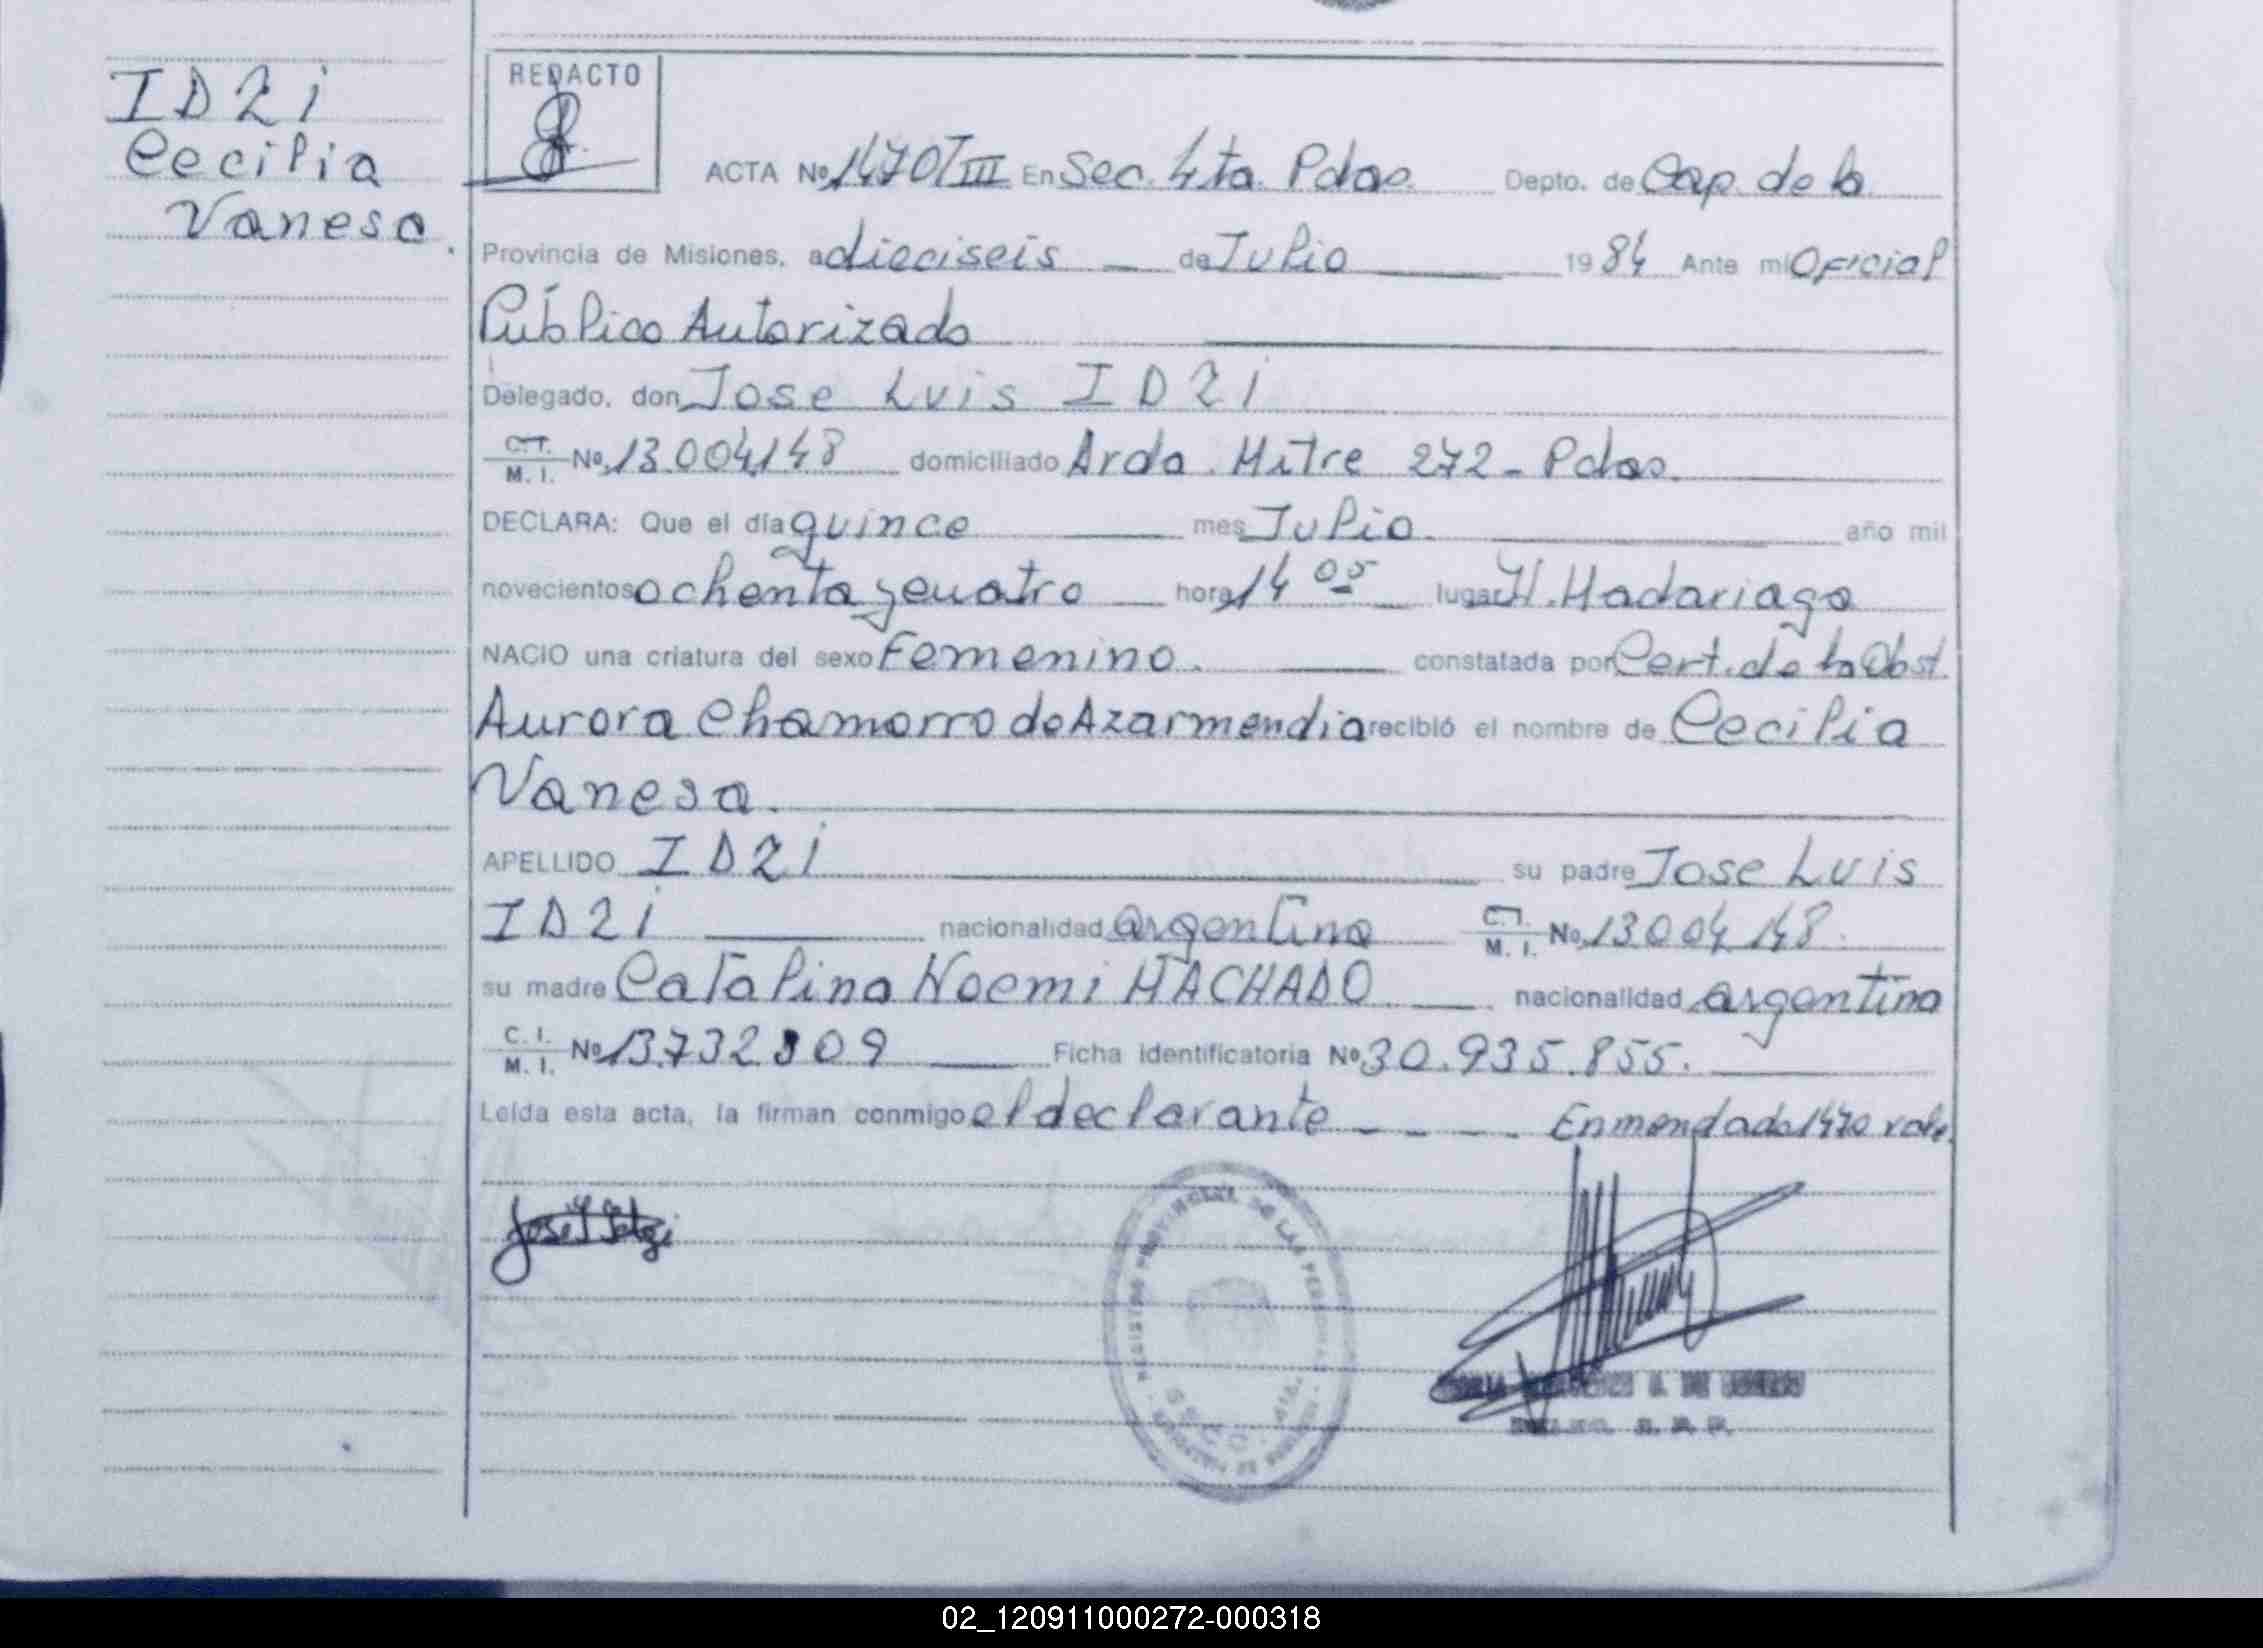 IDZI
Cecilia
Vanesa.
REDACTO
ACTA Nº 1470 T III En Sec. 4ta. Pdas. Depto. de Cap. de la
Provincia de Misiones, a dieciseis de Julio 19 84 Ante mi Oficial
Público Autorizado
Delegado, don Jose Luis IDZI
C.I. M. I. Nº 13.004.148 domiciliado Avda. Mitre 272 - Pdas.
DECLARA: Que el día quince mes Julio. año mil
novecientos ochenta y cuatro hora 14 05 lugar H. Madariaga
NACIO una criatura del sexo Femenino. constatada por Cert. de la Obst.
Aurora Chamorro de Azarmendia recibió el nombre de Cecilia
Vanesa.
APELLIDO IDZI su padre Jose Luis
IDZI nacionalidad argentina C.I. M. I. Nº 13.004.148.
su madre Catalina Noemi MACHADO nacionalidad argentina
C. I. M. I. Nº 13.732.809 Ficha identificatoria Nº 30.935.855.
Leída esta acta, la firman conmigo el declarante Enmendado 1470 vale.
REGISTRO PROVINCIAL DE LAS PERSONAS
02_120911000272-000318